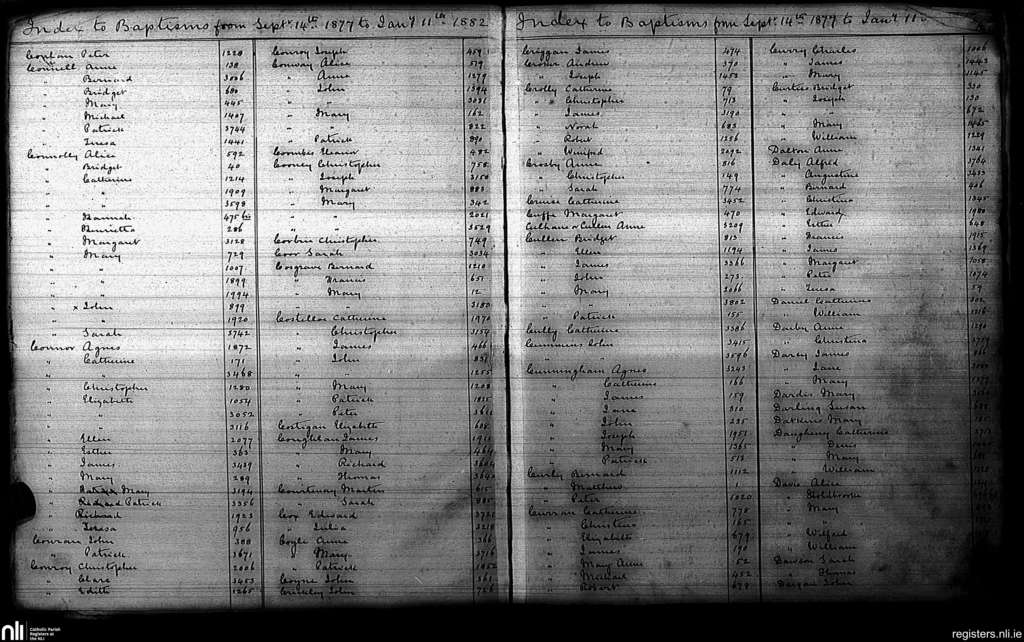 Index to Baptisms from Septr. 14th 1877 to Jany 11th 1882
Conlan Peter 1220
Connell Anne 138
" Bernard 3006
" Bridget 680
" Mary 445
" Michael 1407
" Patrick 3744
" Teresa 1441
Connolly Alice 592
" Bridget 40
" Catherine 1214
" " 1909
" " 3598
" Hannah 475 bis
" Henrietta 286
" Margaret 3128
" Mary 729
" " 1007
" " 1899
" " 1994
" x John 899
" " 1920
" Sarah 3742
Connor Agnes 1872
" Catherine 171
" " 3468
" Christopher 1280
" Elizabeth 1054
" " 3052
" " 3116
" Ellen 2077
" Esther 363
" James 3439
" Mary 289
" Mary 3194
" Patrick 3356
" Richard 1923
" Teresa 956
Conran John 388
" Patrick 3671
Conroy Christopher 2006
" Clare 3453
" Edith 1265
Conroy Joseph 459
Conway Alice 519
" Anne 1279
" John 1394
" " 3031
" Mary 162
" " 822
" Patrick 890
Coombes Eleanor 482
Cooney Christopher 758
" Joseph 3150
" Margaret 883
" Mary 342
" " 2021
" " 3529
Corbin Christopher 749
Corr Sarah 3034
Cosgrave Bernard 1210
" Francis 651
" Mary 12
" " 3180
Costelloe Catherine 1970
" Christopher 3154
" James 466
" John 831
" " 1255
" Mary 1208
" Patrick 1815
" Peter
Costigan Elizabeth 608
Coughlan James 1911
" Mary 464
" Richard 3604
" Thomas
Courtenay Martin 615
" Sarah
Cox Edward
" Julia 3218
Coyle Anne 366
" Mary 3716
" Patrick 1852
Coyne John 361
Creickley John 756
Index to Baptisms from Septr. 14th 1877 to Jany 11
Criggan James 474
Crosier Andrew 370
" Joseph 1453
Crolly Catherine 79
" Christopher 713
" James 3190
" Norah 683
" Robert 1326
" Winifred 2092
Crosby Anne 816
" Christopher 149
" Sarah 774
Cruise Catherine 3452
Cuffe Margaret 470
Culhane or Cullen Anne 3209
Cullen Bridget 813
" Ellen 1194
" James 3366
" John 273
" Mary 3066
" " 3802
" Patrick 155
Cully Catherine 3386
Cummins John 3415
" " 3596
Cunningham Agnes 3243
" Catherine 166
" James 159
" Jane 310
" John 235
" Joseph 1957
" Mary 1365
" Patrick 513
Curley Bernard 1112
" Matthew 1
" Peter 1020
Curran Catherine 778
" Christina 165
" Elizabeth 679
" James 190
" Mary Anne 52
" Michael 452
" Robert 678
Curry Charles 1006
" James 1443
" Mary 1145
Curtis Bridget 330
" Joseph 130
" " 672
" Mary 1465
" William 1229
Dalton Anne 1381
Daly Alfred 3764
" Augustine 3433
" Bernard 406
" Christina 1345
" Edward 1980
" Esther 648
" Francis 1915
" James 1369
" Margaret 1058
" Peter 1074
" Teresa 59
Daniel Catherine 302
" William 3316
Darby Anne 1290
" Christina
Darcy James
" Jane
" Mary
Dardis Mary
Darling Susan
Datkins Mary
Daugheny Catherine
" Denis
" Mary
" William
Davis Alice
" Holdbrooke
" Mary
" "
" Wilfred
" William
Dawson Sarah
" Thomas
Deegan John
nli
Catholic Parish
Registers at
the NLI
registers.nli.ie